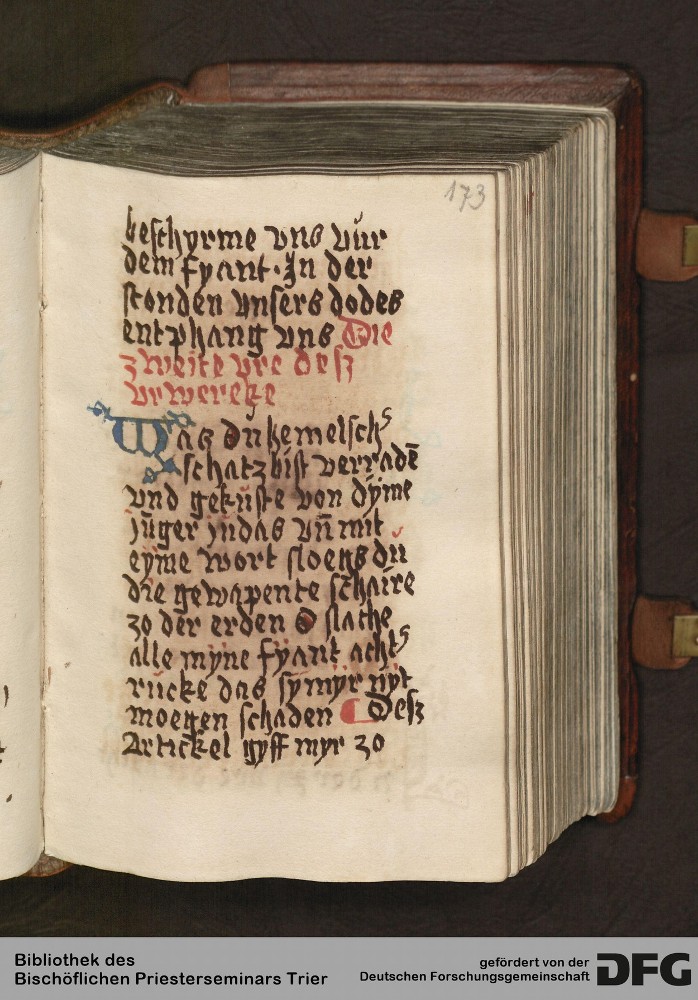 173
beschyrme vns vur
dem fyant · In der
stonden vnsers dodes
entphang vns Die
zweite vre desz
vrwercke
Was du hemelsch
schatz bist verradē
vnd gekuste von dyme
junger judas vn̄ mit
eyme wort sloegs du
die gewapente schaire
zo der erden O slache
alle myne fyant acht
rucke das sy myr nyt
moegen schaden Desz
Artickel gyff myr zo
Bibliothek des
Bischöflichen Priesterseminars Trier
gefördert von der
Deutschen Forschungsgemeinschaft
DFG